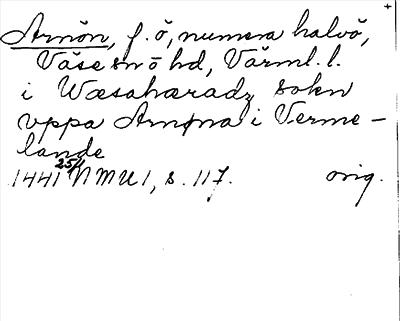 +
Arnön, f. ö, numera halvö,
Väse sn ö hd, Värml. l.
i Wæsahæradz sokn
vppa Arnøna i Verme-
lande
1441 25/1 NMU 1, s. 117. orig.